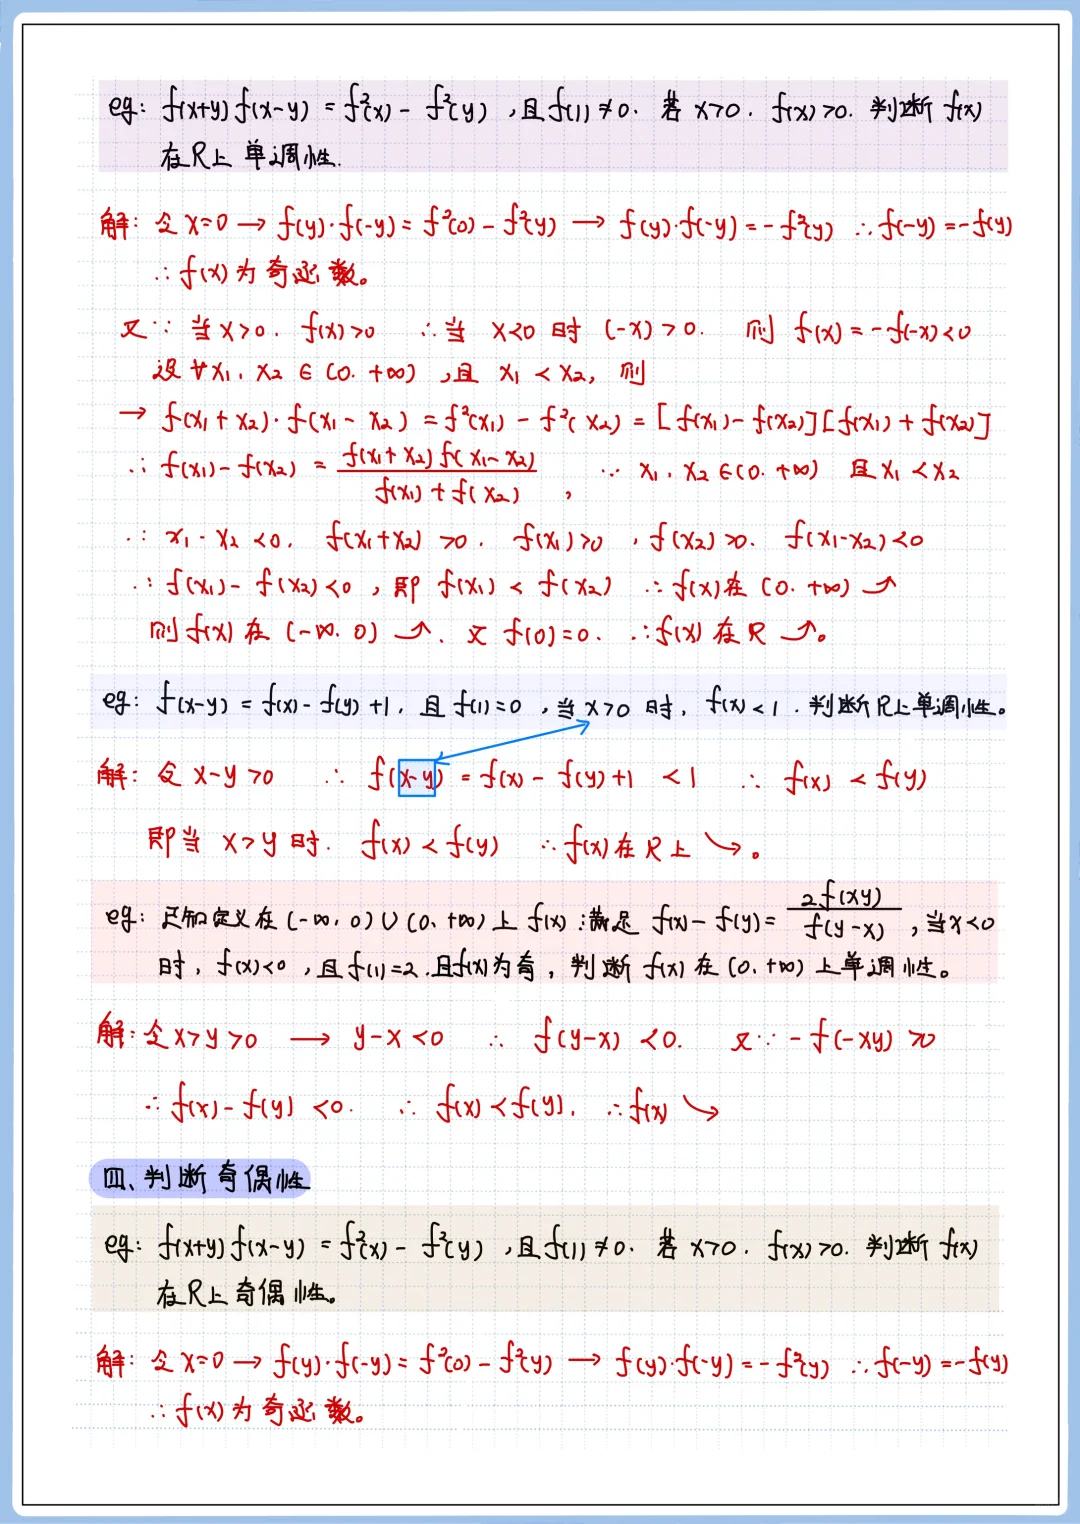 eg: f(x+y)f(x-y) = f²(x) - f²(y), 且f(1)≠0. 若 x>0. f(x)>0. 判断 f(x)
在R上 单调性.
解: 令 x=0 → f(y)·f(-y) = f²(0) - f²(y) → f(y)·f(-y) = -f²(y) ∴ f(-y) = -f(y)
∴ f(x) 为奇函数。
又∵ 当x>0. f(x)>0 ∴ 当 x<0 时 (-x)>0. 则 f(x) = -f(-x)<0
设∀x₁. x₂ ∈ (0. +∞), 且 x₁ < x₂, 则
→ f(x₁+x₂)·f(x₁-x₂) = f²(x₁) - f²(x₂) = [f(x₁)-f(x₂)][f(x₁)+f(x₂)]
∴ f(x₁)-f(x₂) = f(x₁+x₂)f(x₁-x₂) / f(x₁)+f(x₂), ∵ x₁. x₂∈(0. +∞) 且x₁<x₂
∴ x₁-x₂<0. f(x₁+x₂)>0. f(x₁)>0, f(x₂)>0. f(x₁-x₂)<0
∴ f(x₁)-f(x₂)<0, 即 f(x₁) < f(x₂) ∴ f(x)在(0. +∞) ↗
则f(x)在(-∞. 0) ↗. 又 f(0)=0. ∴f(x)在R ↗。
eg: f(x-y) = f(x)-f(y)+1. 且 f(1)=0, 当x>0 时. f(x)<1. 判断R上单调性。
解: 令 x-y>0 ∴ f(x-y) = f(x)-f(y)+1 <1 ∴ f(x) < f(y)
即当 x>y 时. f(x) < f(y) ∴ f(x)在R上 ↘。
eg: 已知定义在(-∞, 0)∪(0, +∞)上 f(x) 满足 f(x)-f(y) = 2f(xy) / f(y-x), 当x<0
时, f(x)<0, 且f(1)=2. 且f(x)为奇, 判断 f(x)在(0. +∞)上单调性。
解: 令x>y>0 → y-x<0 ∴ f(y-x)<0. 又∵ -f(-xy)>0
∴ f(x)-f(y)<0. ∴ f(x)<f(y). ∴f(x) ↘
四、判断奇偶性
eg: f(x+y)f(x-y) = f²(x) - f²(y), 且f(1)≠0. 若 x>0. f(x)>0. 判断 f(x)
在R上奇偶性。
解: 令 x=0 → f(y)·f(-y) = f²(0) - f²(y) → f(y)·f(-y) = -f²(y) ∴ f(-y) = -f(y)
∴ f(x) 为奇函数。